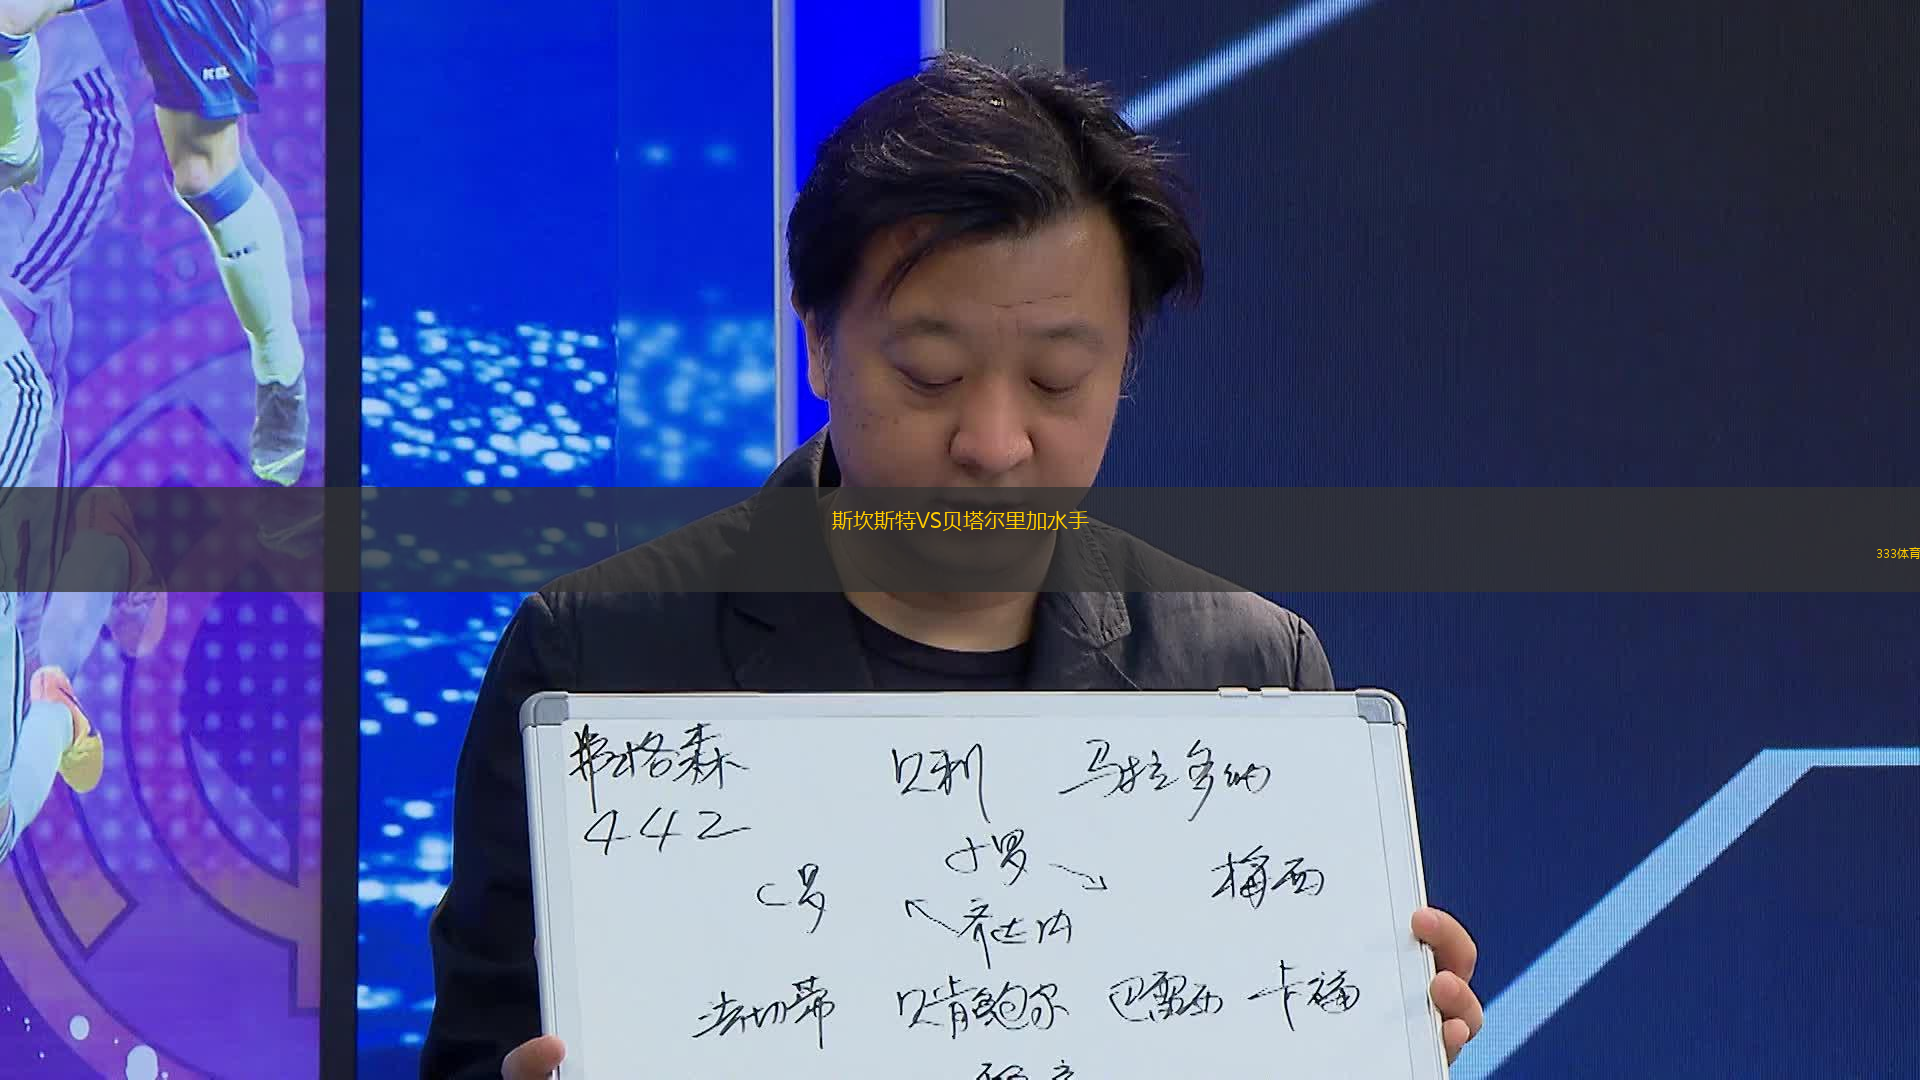 KEL
斯坎斯特VS贝塔尔里加水手
333体育
弗格森 贝利 马拉多纳
442
小罗
C罗 梅西
齐达内
法切蒂 贝肯鲍尔 巴雷西 卡福